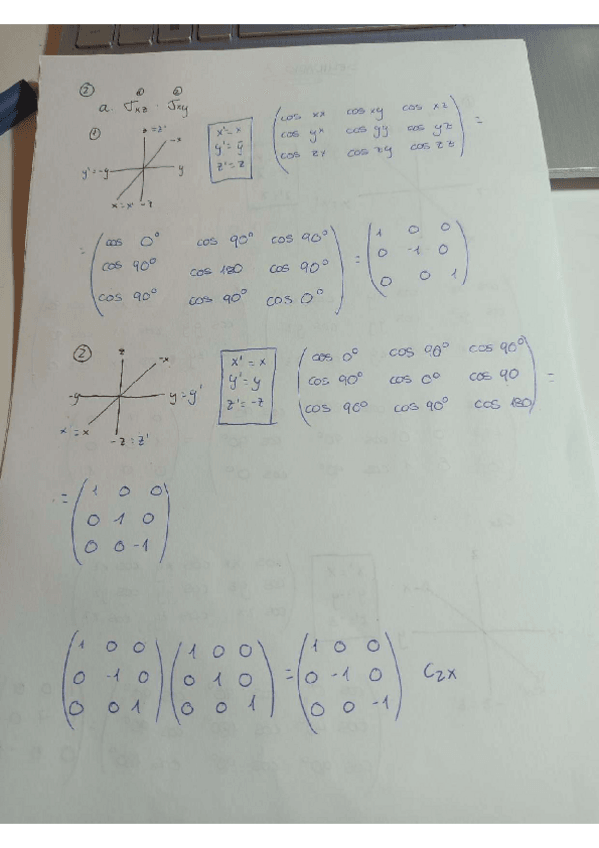 ②
① ②
a. σxz · σxy
①
z=z'
-x
y'=-y
y
x=x' -z
x'=x
y'=ȳ
z'=z
( cos xx cos xy cos xz
cos yx cos yy cos yz
cos zx cos zy cos zz ) =
= ( cos 0° cos 90° cos 90°
cos 90° cos 180 cos 90°
cos 90° cos 90° cos 0° ) = ( 1 0 0
0 -1 0
0 0 1 )
②
z
-x
-y
y=y'
x=x
-z=z'
x'=x
y'=y
z'=-z
( cos 0° cos 90° cos 90°
cos 90° cos 0° cos 90
cos 90° cos 90° cos 180 ) =
= ( 1 0 0
0 1 0
0 0 -1 )
( 1 0 0
0 -1 0
0 0 1 ) ( 1 0 0
0 1 0
0 0 1 ) = ( 1 0 0
0 -1 0
0 0 -1 ) C2x